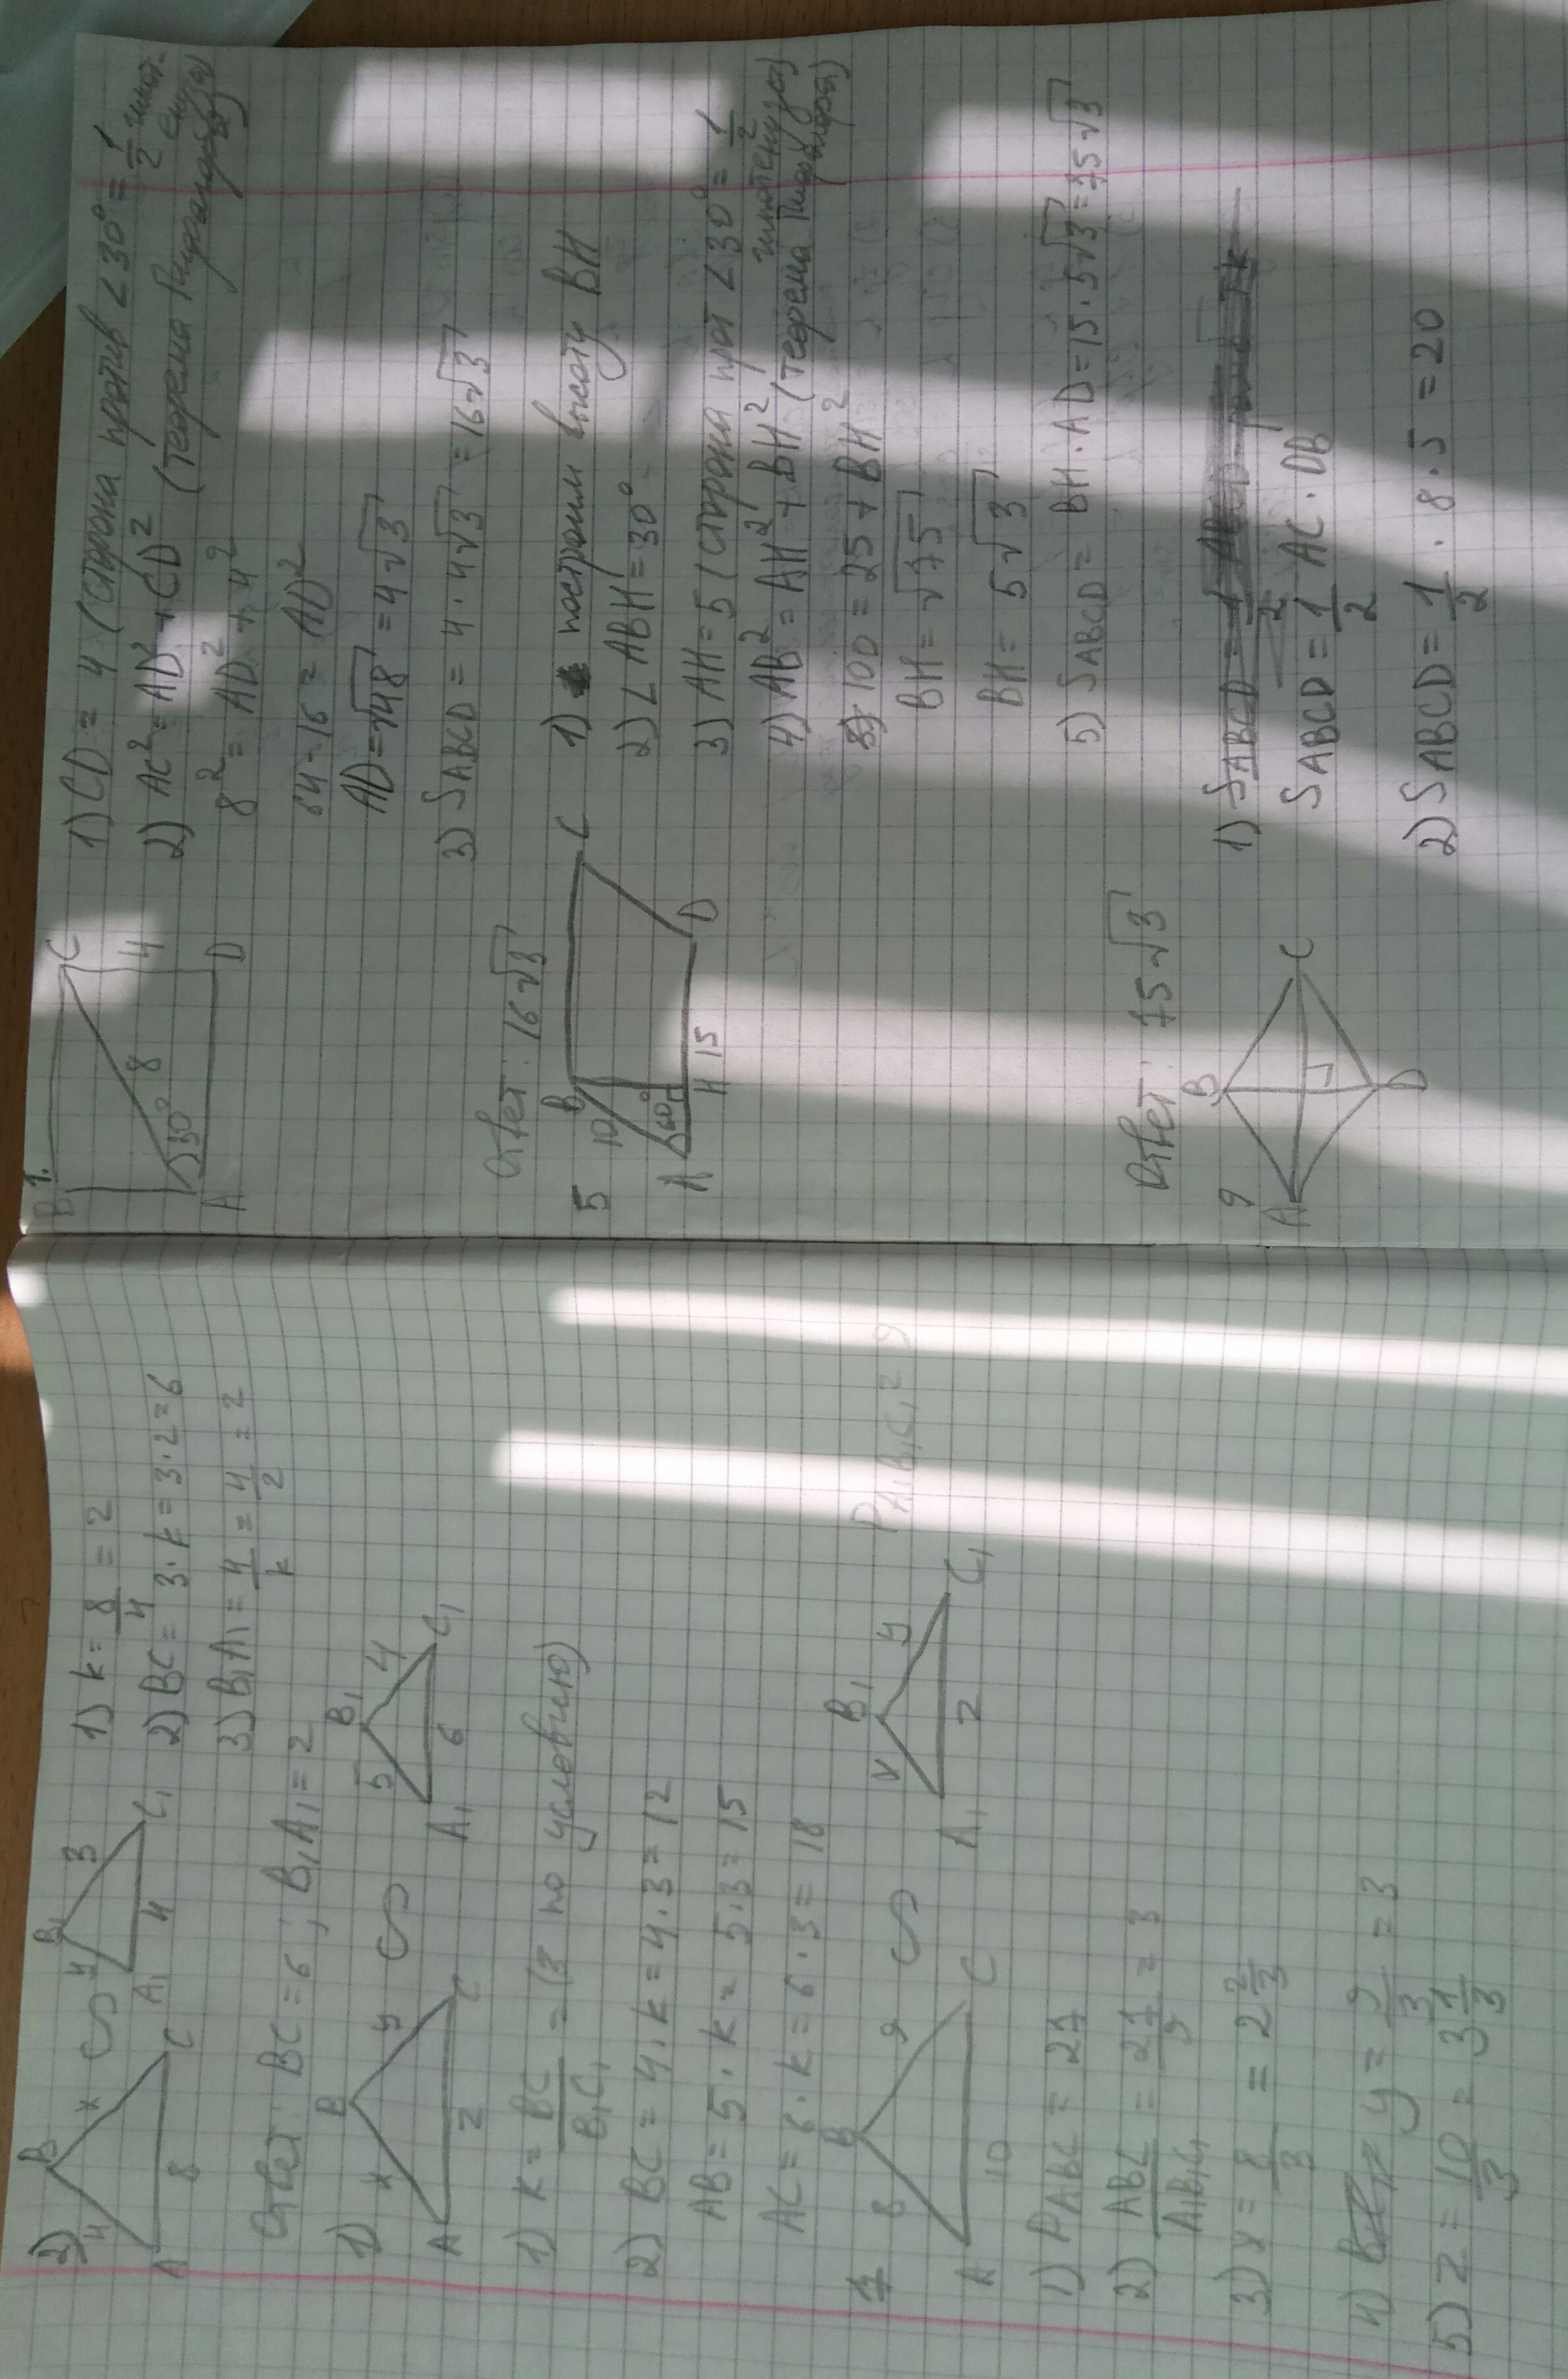 2)
B
x
4
A
8
C
∽
B₁
y
3
A₁
4
C₁
1) k = 8/4 = 2
2) BC = 3·k = 3·2 = 6
3) B₁A₁ = 4/k = 4/2 = 2
Ответ: BC = 6; B₁A₁ = 2
1)
B
x
y
A
z
C
∽
B₁
5
4
A₁
6
C₁
1) K = BC/B₁C₁ = (3 по условию)
2) BC = 4·k = 4·3 = 12
AB = 5·k = 5·3 = 15
AC = 6·k = 6·3 = 18
7
B
8
9
A
10
C
∽
B₁
x
y
A₁
z
C₁
P A₁B₁C₁ = 9
1) P ABC = 27
2) ABC/A₁B₁C₁ = 27/9 = 3
3) x = 8/3 = 2 2/3
4) y = 9/3 = 3
5) z = 10/3 = 3 1/3
1.
B
C
4
8
30°
A
D
1) CD = 4 (сторона против ∠30° = 1/2 гипот-
енузы)
2) AC² = AD² + CD² (теорема Пифагора)
8² = AD² + 4²
64 - 16 = AD²
AD = √48 = 4√3
3) SABCD = 4·4√3 = 16√3
Ответ: 16√3
5
B
C
10
60°
A
H
15
D
1) построим высоту BH
2) ∠ABH = 30°
3) AH = 5 (сторона прот ∠30° = 1/2
гипотенузы)
4) AB² = AH² + BH² (теорема Пифагора)
100 = 25 + BH²
BH = √75
BH = 5√3
5) SABCD = BH·AD = 15·5√3 = 75√3
Ответ: 75√3
9
B
A
C
D
1) SABCD = 1/2
SABCD = 1/2 AC·DB
2) SABCD = 1/2 · 8·5 = 20